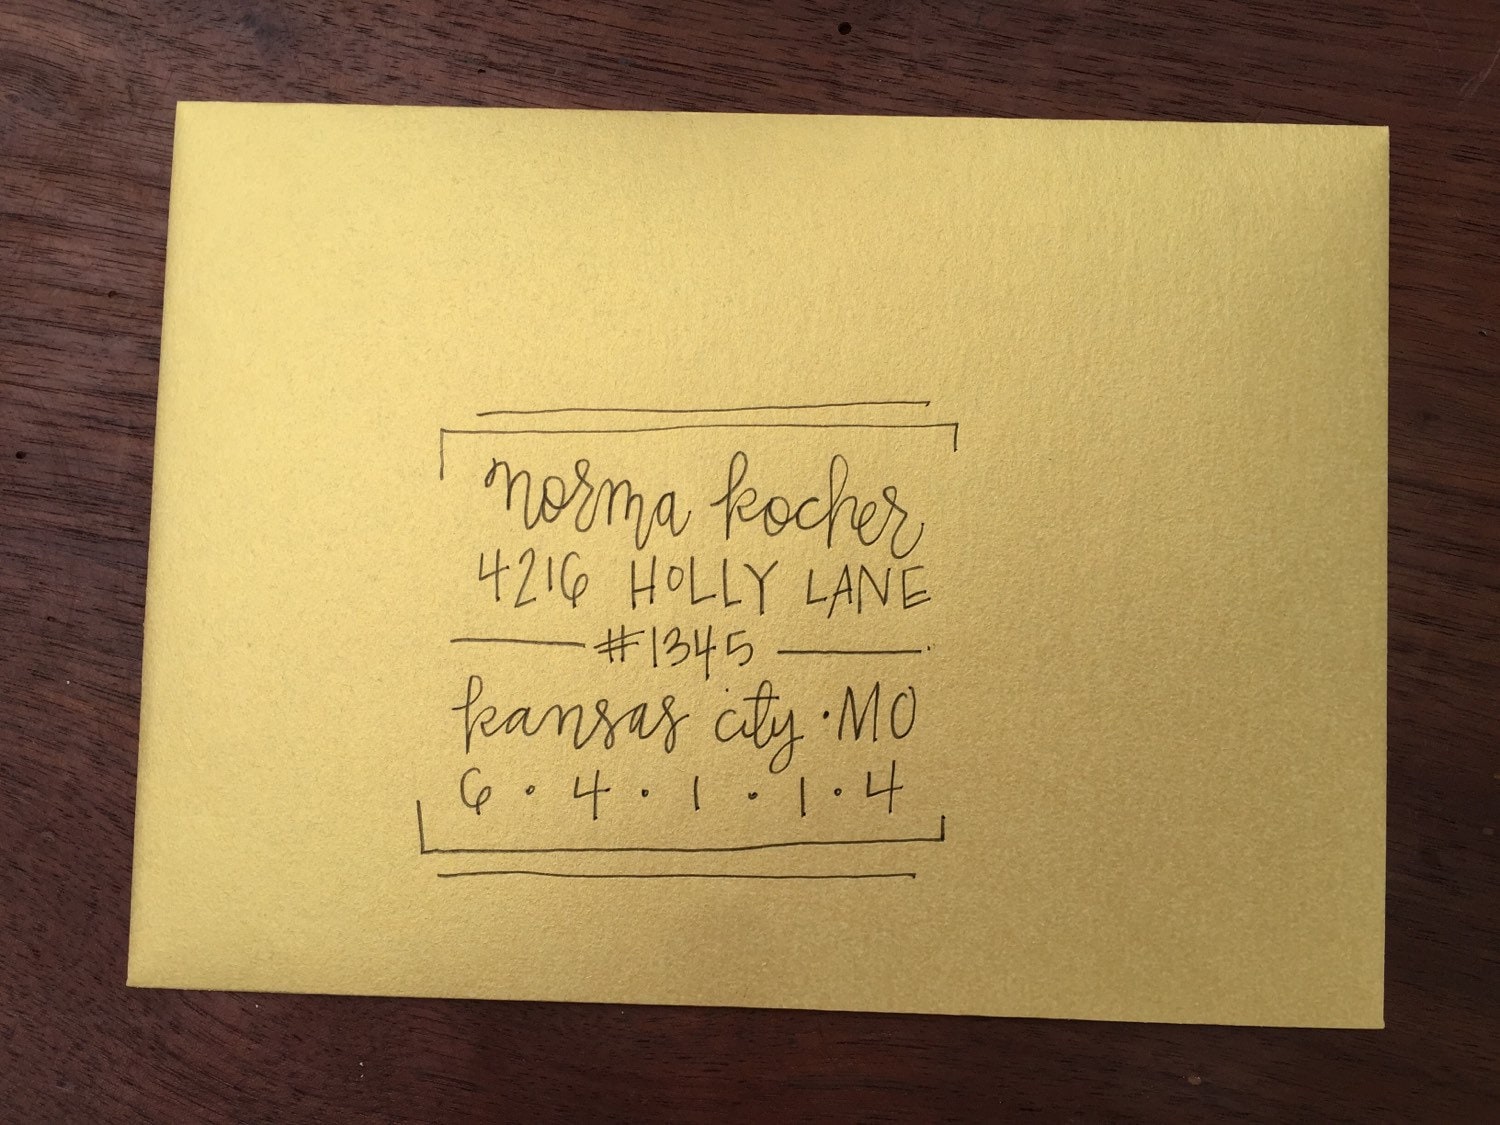 norma kocher
4216 HOLLY LANE
#1345
kansas city · MO
6 · 4 · 1 · 1 · 4